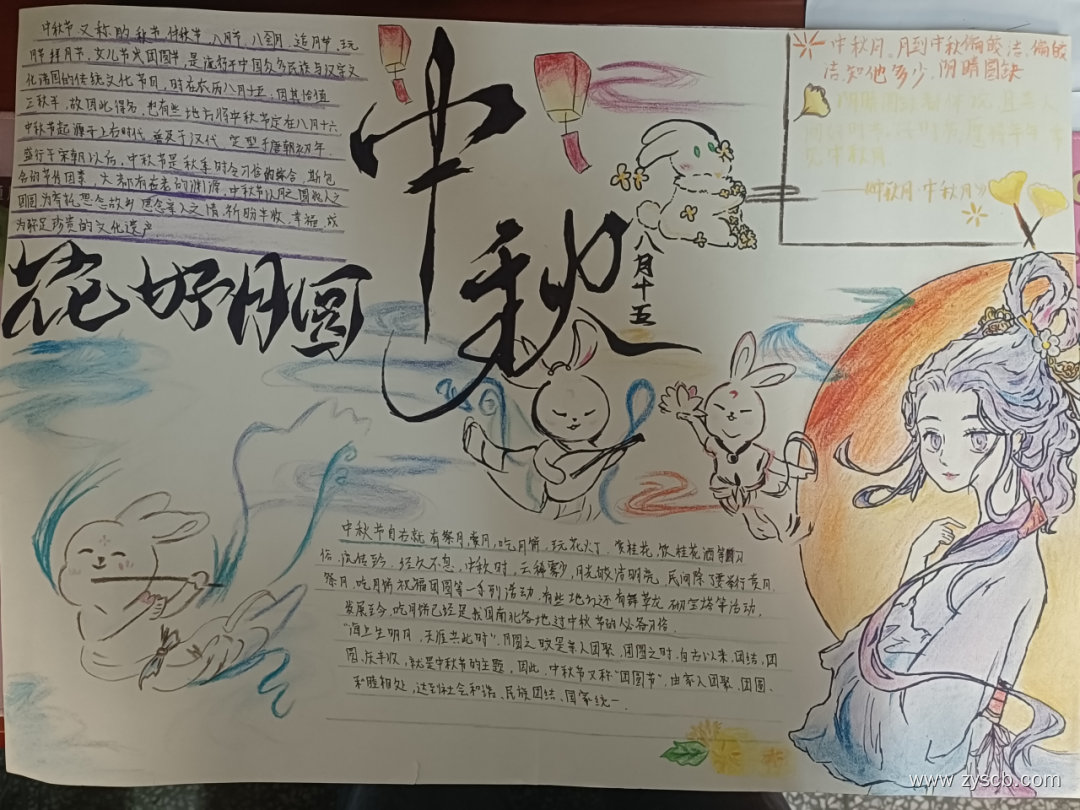 中秋节又称
八月节、八月会、追月节、玩
月节、拜月节、女儿节
是流行于中国众多民族与汉字文
化诸国的传统文化节日，时在农历八月十五；因其恰值
三秋之半，故因此得名，也有些地方将中秋节定在八月十六。
中秋节起源于上古时代，普及于汉代，定型于唐朝初年，
盛行于宋朝以后。中秋节是秋季时令习俗的综合，
的节俗因素，大都有古老的渊源。中秋节以月之圆
团圆，为寄托思念故乡，思念亲人之情，祈盼丰收、幸福，成
为 珍贵的文化遗产
中秋
八月十五
花好月圆
中秋月。月到中秋偏皎洁。偏皎
洁，知他多少，阴晴圆缺。
阴晴圆缺
中秋月
中秋月》
中秋节自古就有祭月，赏月，吃月饼，玩花灯，赏桂花，饮桂花酒等习
俗，流传至今，经久不息。中秋时，云稀雾少，月光皎洁明亮，民间除了要举行赏月，
祭月，吃月饼祝福团圆等一系列活动，有些地方还有舞草龙，砌宝塔等活动，
发展至今，吃月饼已经是我国南北各地过中秋节的必备习俗。
“海上生明月，天涯共此时”，月圆之时 亲人团聚，团圆之时，自古以来，团结，团
圆、庆丰收，就是中秋节的主题。因此，中秋节又称“团圆节”，由家人团聚、团圆、
和睦相处，达到社会和谐、民族团结、国家统一。
www.zyscb.com